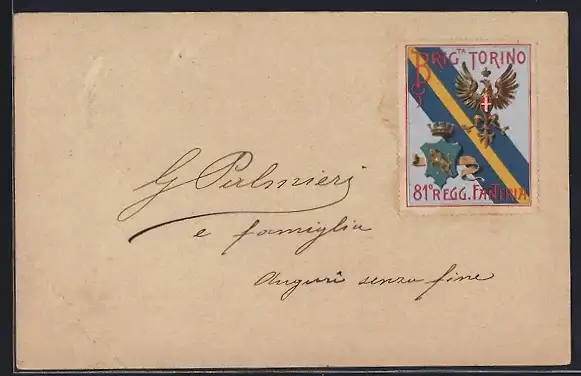 BRIG.TA TORINO
81º REGG. FANTERIA
G Palmieri
e famiglia
Auguri senza fine